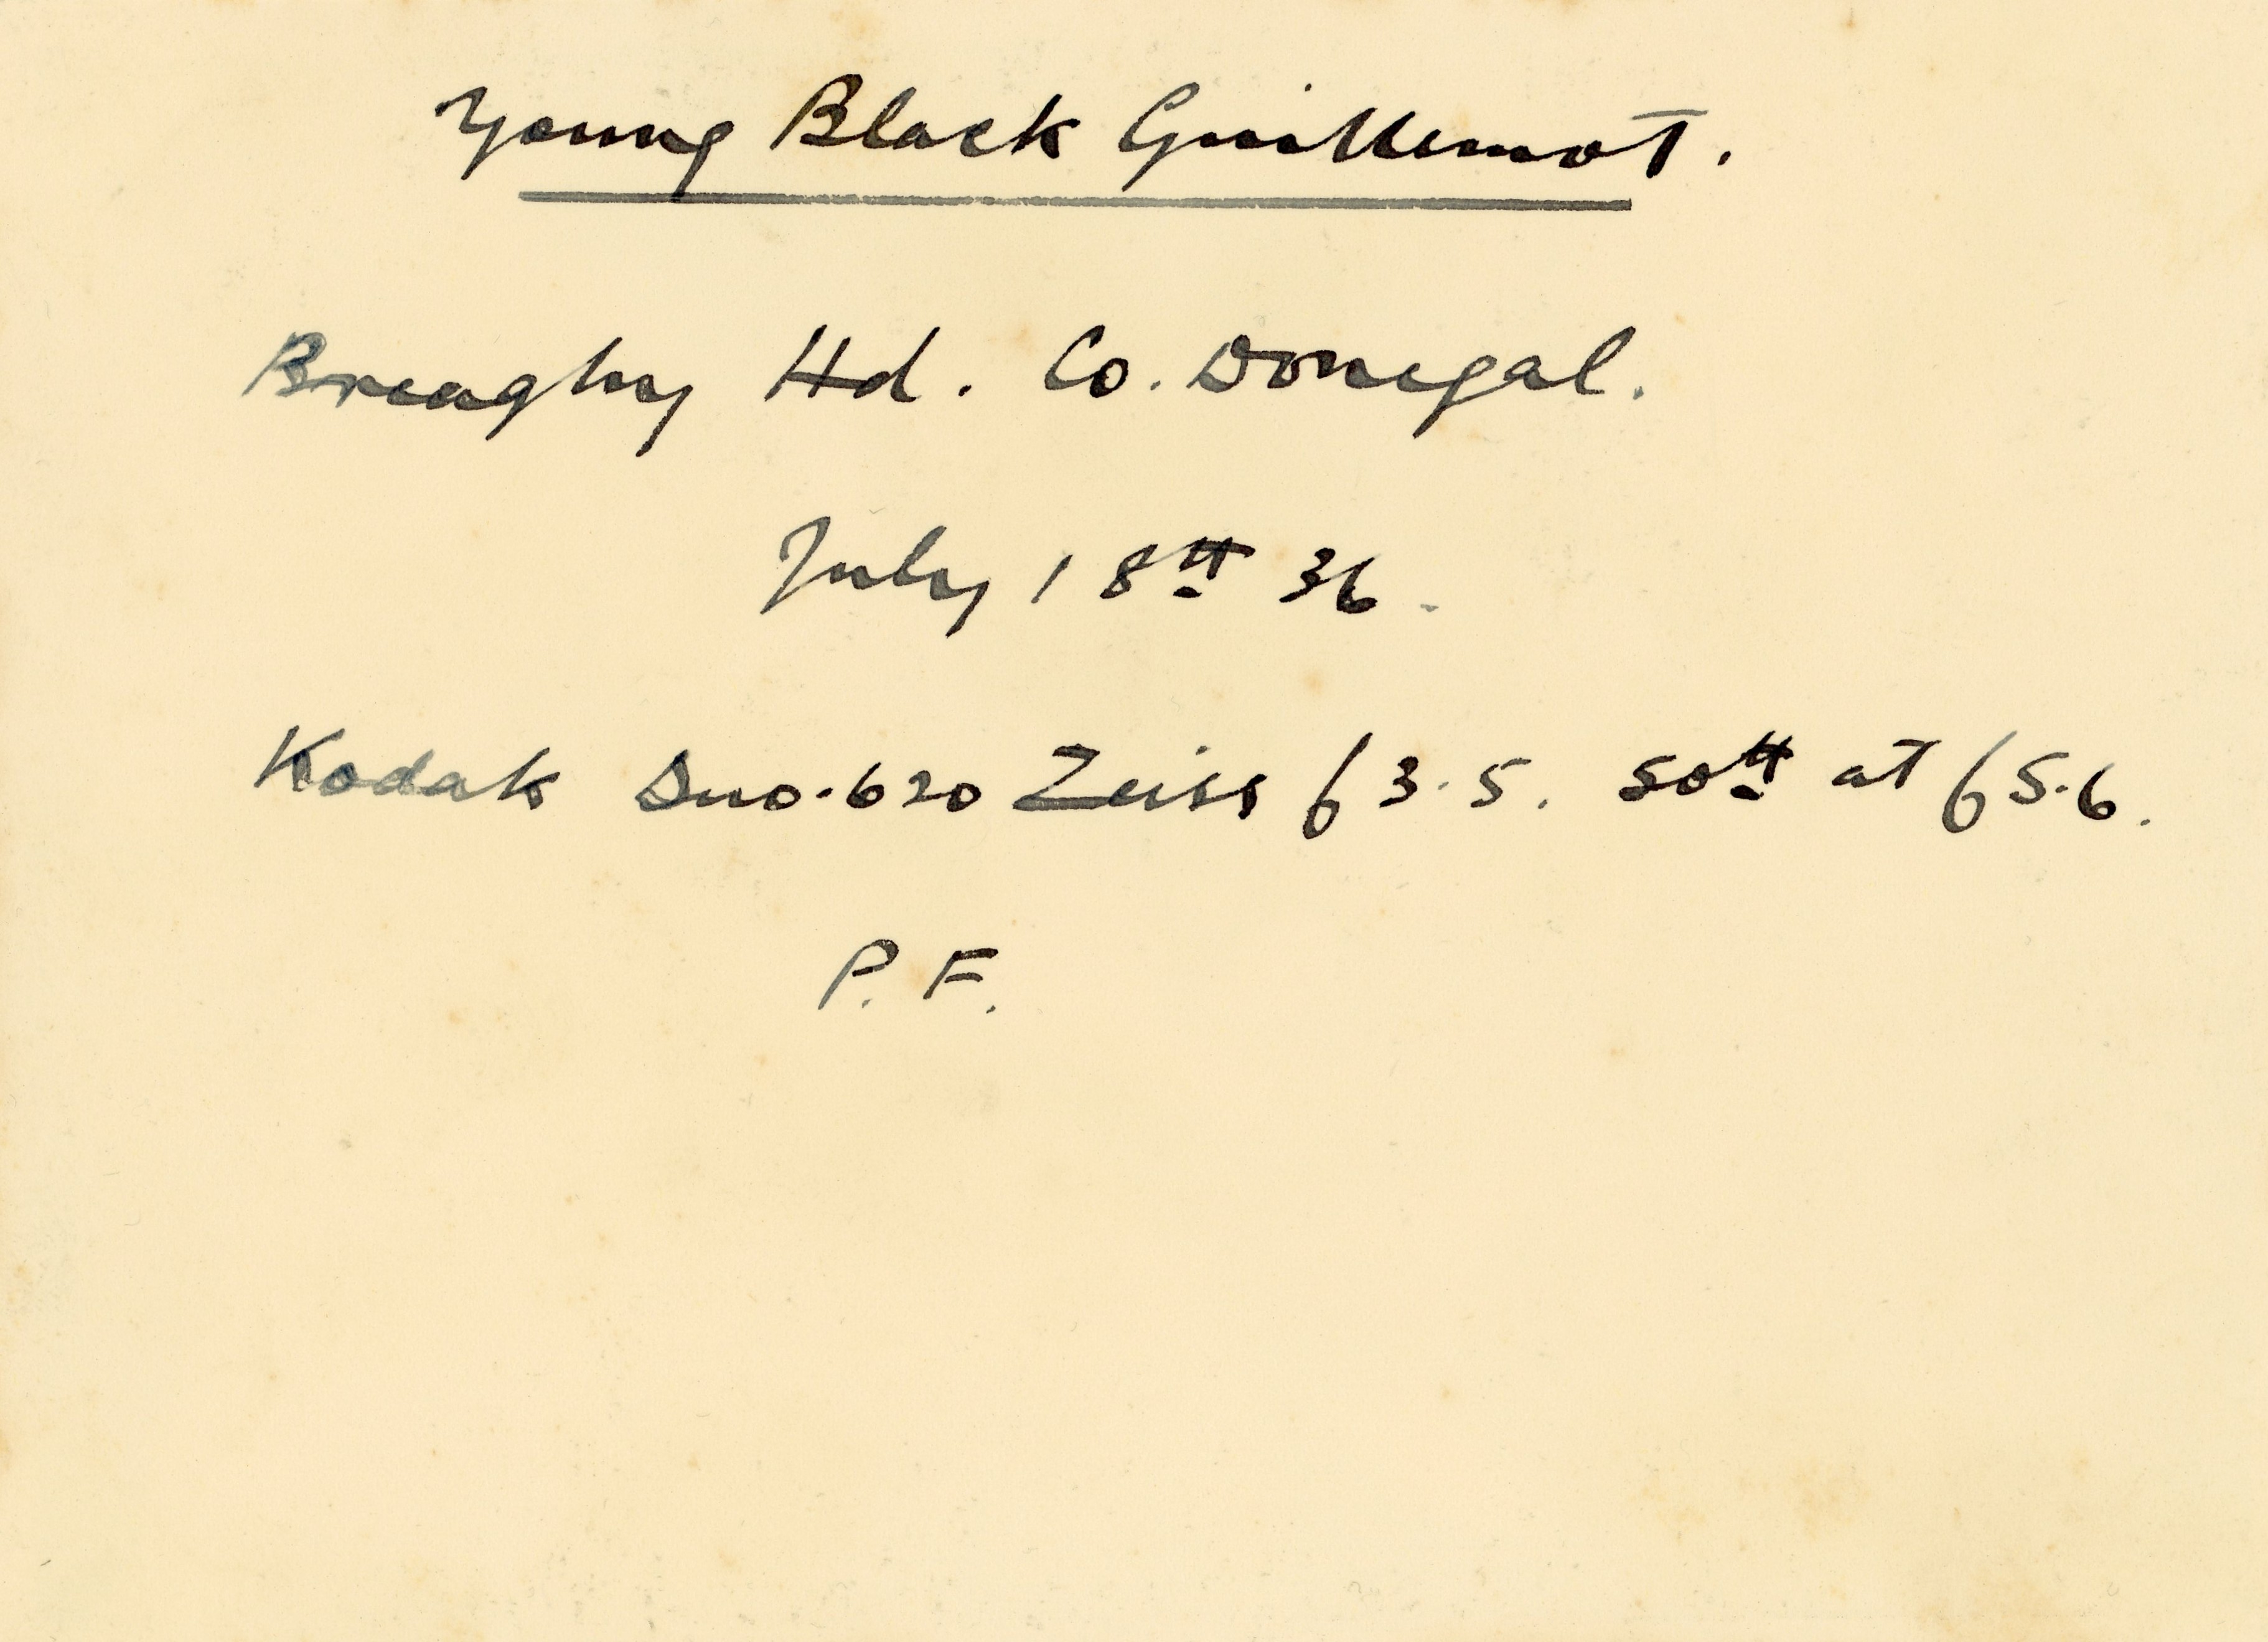 Young Black Guillemot.
Breaghy Hd. Co. Donegal.
July 18th 36.
Kodak Duo-620 Zeiss f3.5. 50th at f5.6.
P. F.